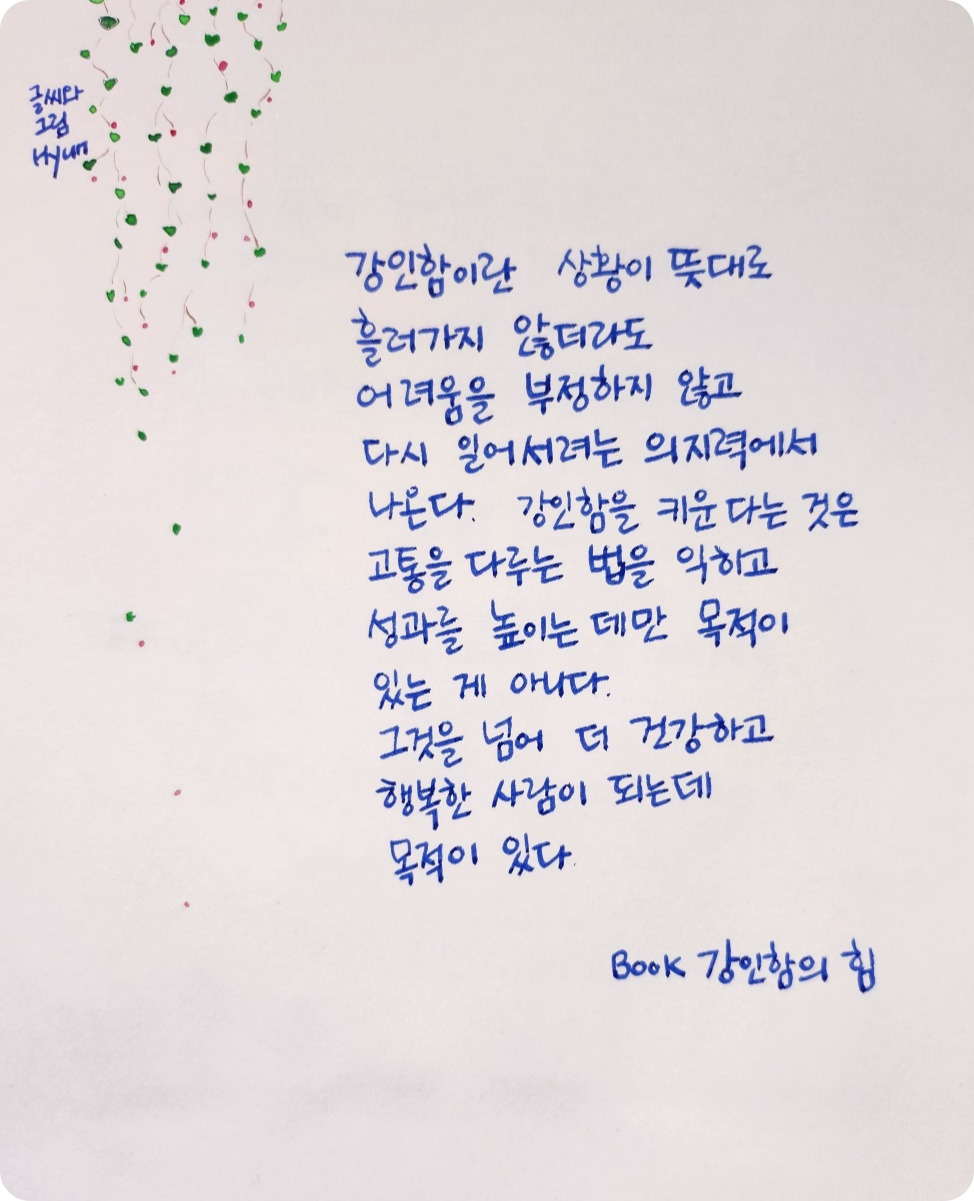 글씨와
그림
Hyun
강인함이란 상황이 뜻대로
흘러가지 않더라도
어려움을 부정하지 않고
다시 일어서려는 의지력에서
나온다. 강인함을 키운다는 것은
고통을 다루는 법을 익히고
성과를 높이는데만 목적이
있는 게 아니다.
그것을 넘어 더 건강하고
행복한 사람이 되는데
목적이 있다.
BOOK 강인함의 힘